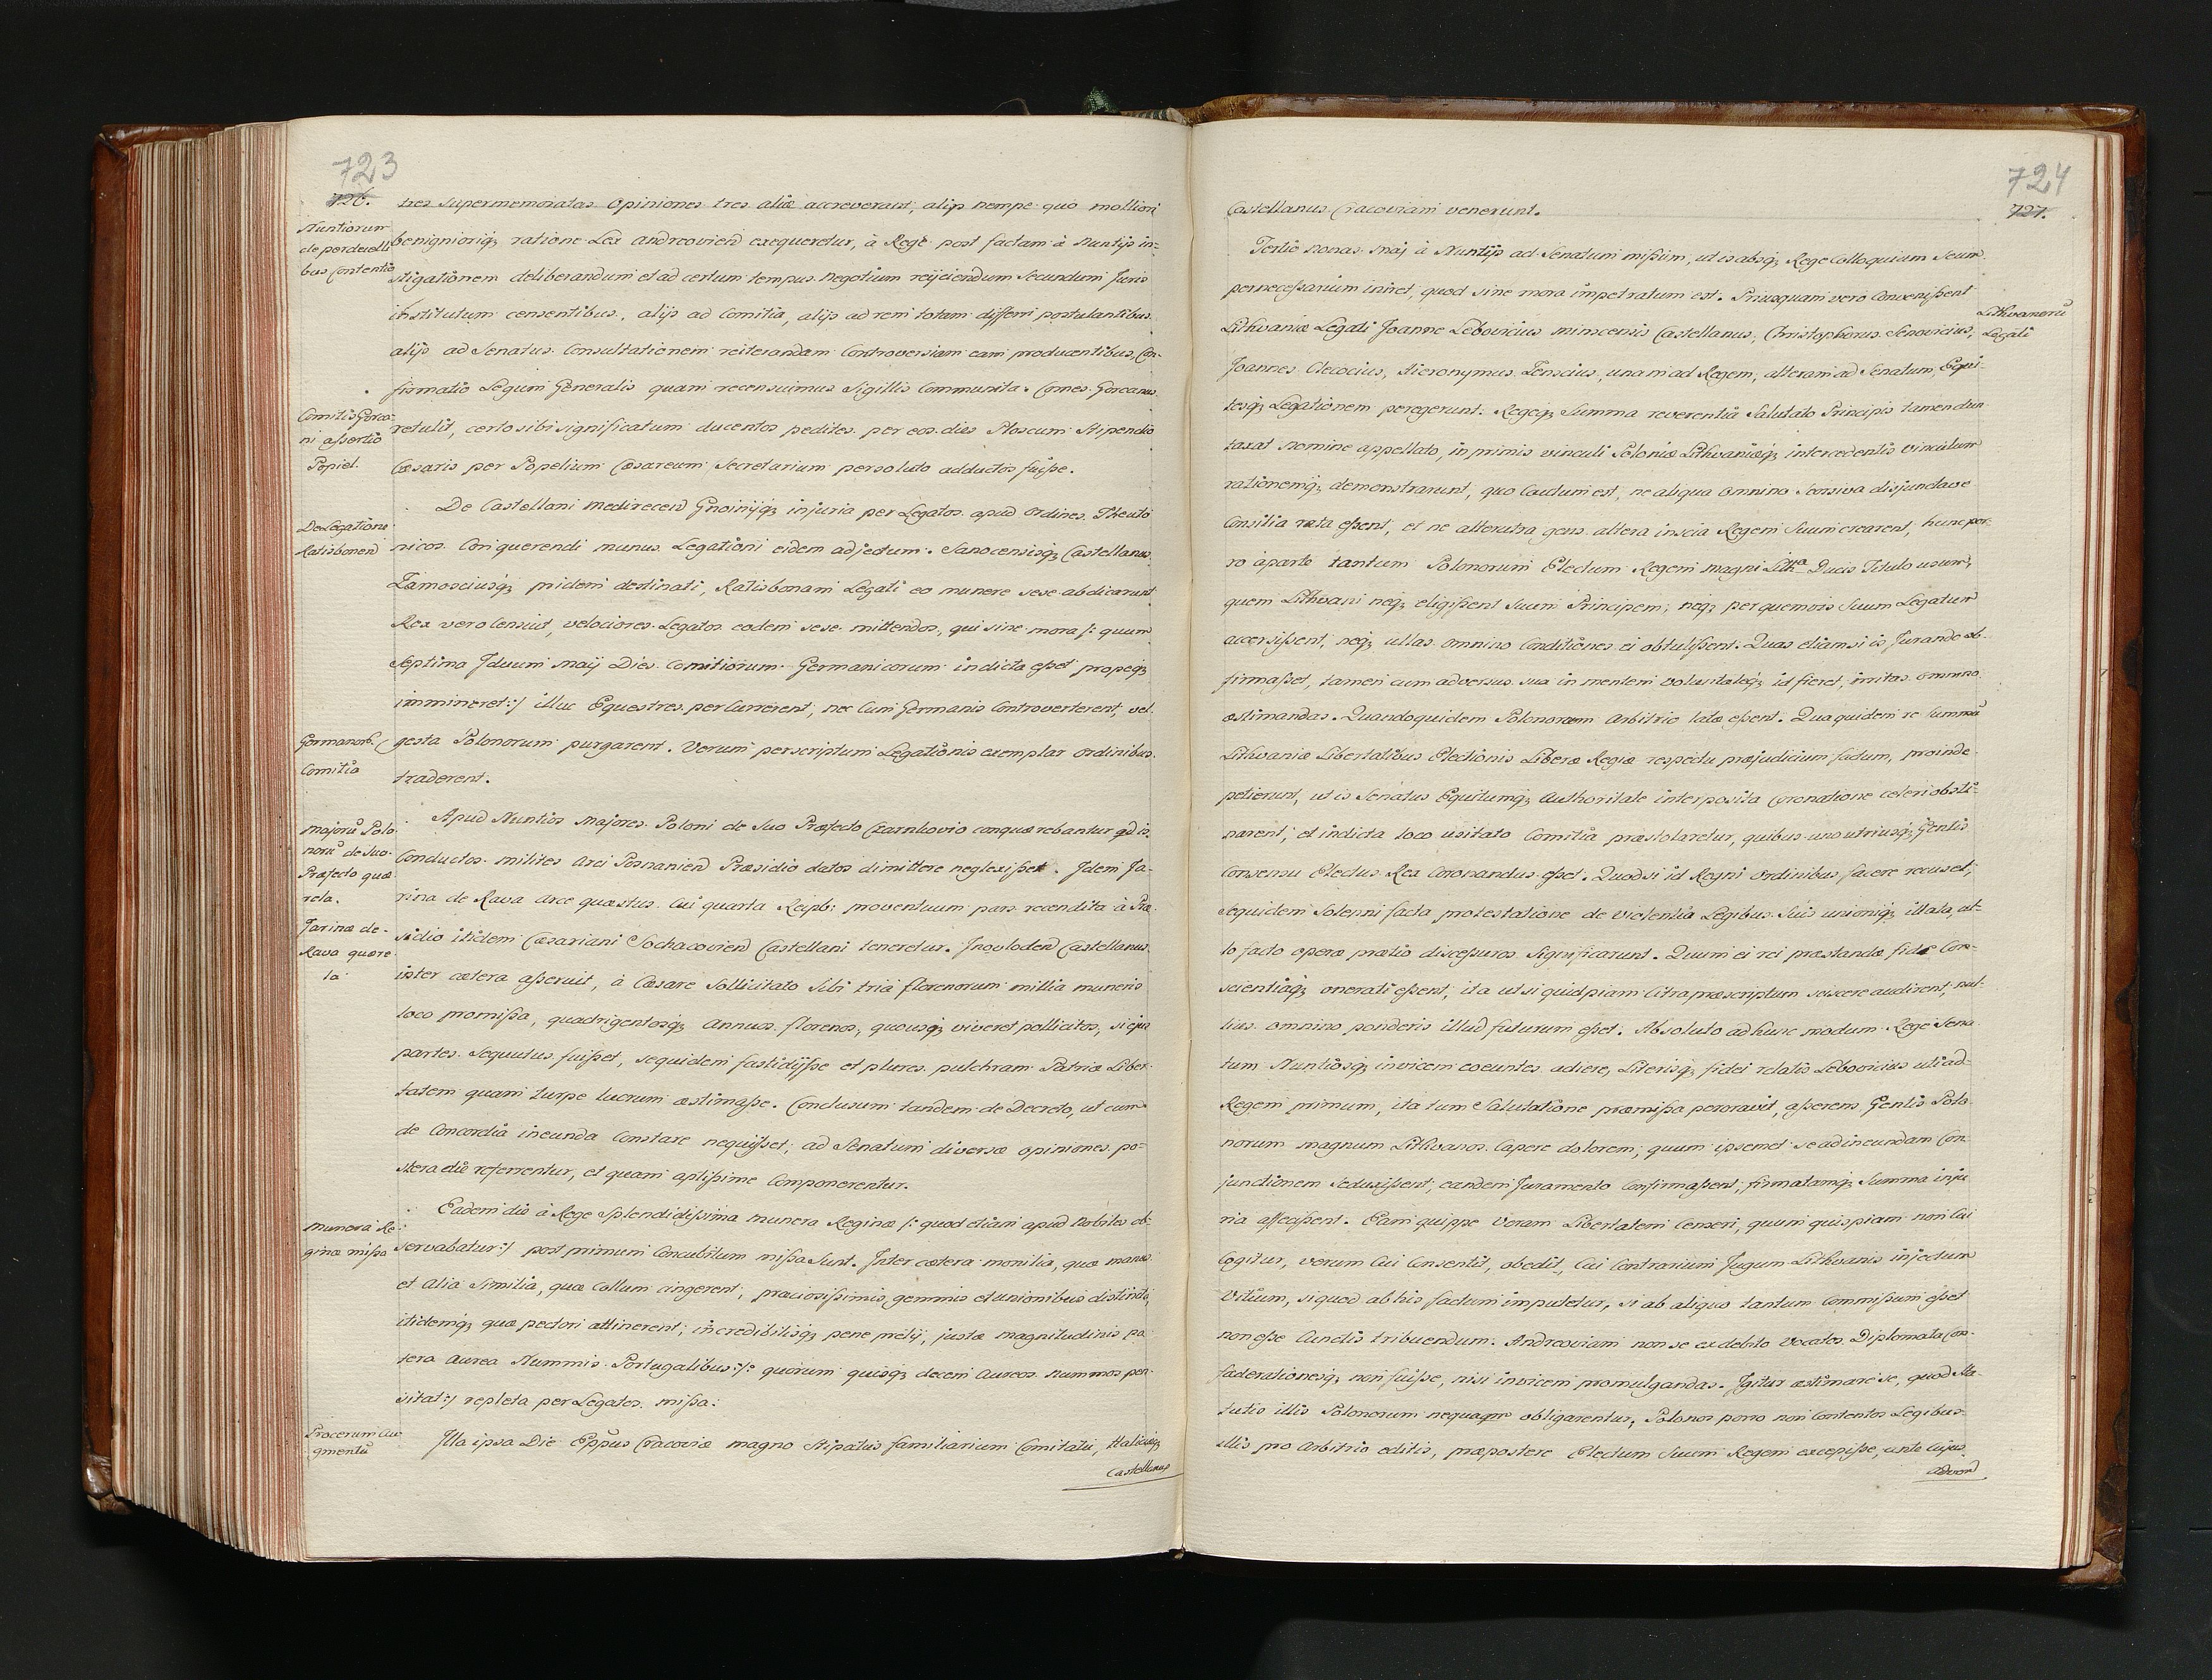 723
726.
tres supermemoratas Opiniones tres aliæ accreverant, alijs nempe quò molliori
Nuntiorum
de perduelli
bus Contentio
benigniorig3 ratione Lex Andreoviend exequeretur, à Rege post factam à Nuntijs in-
stigationem deliberandum et ad certum tempus negotium reijciendum Secundum Juris
institutum censentibus, alijs ad Comitia, alijs ad rem totam differri postulantibus.
alijs ad Senatus Consultationem reiterandam Controversiam eam producentibus, Con-
firmatio Legum Generalis quam recensuimus Sigillis Communita. Comes Gorcanus
Comitis Gorca-
ni assertio
Popiel.
retulit, certo sibi significatum ducentos pedites per eos dies Ploscum Stipendio
Cæsaris per Popelium Cæsareum Secretarium persoluto adductos fuisse.
De Legatione
Ratisbonend
De Castellani Medirecend Gnoinijq3 injuria per Legatos apud Ordines Theuto
nicos Conquerendi munus Legationi eidem adjectum. Sanocensisq3 Castellanus
Zamosciusq3 pridem destinati, Ratisbonam Legati eo munere sese abdicarunt
Rex vero censuit, velociores Legatos eodem sese mittendos, qui sine mora /: quum
Septima Iduum Maij Dies Comitiorum Germanicorum indicta esset propeq3
immineret :/ illuc Equestres perCurrerent, nec Cum Germanis Controverterent, vel
Germanor.
Comitia
gesta Polonorum purgarent. Verum perscriptum Legationis exemplar Ordinibus
traderent.
Majorũ Polo
norũ de Suo
Præfecto quæ
rela.
Apud Nuntios Majores Poloni de Suo Præfecto Czarnkovio conquærebantur qd is
Conductos milites Arci Posnaniend Præsidio datos dimittere neglexisset. Idem Ja-
rina de Rava arce quæstus. Cui quarta Reipb: proventuum pars recondita à Præ
Jarinæ de
Rava quære
la
sidio itidem Cæsariani Sochacoviend Castellani teneretur. Inovlodend Castellanus
inter cætera asseruit, à Cæsare Sollicitato Sibi tria florenorum millia muneris
loco promissa, quadrigentosq3 Annuos florenos, quousq3 viveret pollicitos, si ejus
partes Sequutus fuisset, sequidem fastidijsse et plures pulchram Patriæ Liber-
tatem quam turpe lucrum æstimasse. Conclusum tandem de Decreto, ut cum
de Concordia ineunda Constare nequijsset, ad Senatum diversæ opiniones po-
stera die referrentur, et quam aptissime Componerentur.
Munera Re
ginæ missa
Eadem die à Rege Splendidissima munera Reginæ /: quod etiam apud Nobiles ob-
servabatur :/ post primum Concubitum missa Sunt. Inter cætera monilia, quæ manus
et Alia Similia, quæ Collum cingerent, præciosissimis gemmis et unionibus distincta,
itidemq3 quæ pectori attinerent, incredibilisq3 pene pretij, justæ magnitudinis pa-
tera Aurea Nummis Portugalibus :/: quorum quisq3 decem Aureos nummos pen-
sitat :/ repleta per Legatos missa:
Procerum Au
gmentũ
Illa ipsa Die Eppus Cracoviæ magno Stipatus familiarium Comitatu, Haliciæq3
Castellanus
724
727.
Castellanus Cracoviam venerunt.
Tertio Nonas Maij à Nuntijs ad Senatum missum, ut is absq3 Rege Colloquium Secum
pernecessarium iniret, quod sine mora impetratum est. Priusquam vero Convenissent
Lithvanorũ
Legati
Lithvaniæ Legati Joanne Lebovicius Minscensis Castellanus, Christophorus Senovicius,
Joannes Clecocius, Hieronymus Zenscius, unam ad Regem, alteram ad Senatum, Equi-
tesq3 Legationem peregerunt. Regeq3 Summa reverentia Salutato Principis tamen dun
taxat Nomine appellato, in primis vinculi Poloniæ Lithvaniæq3 intercedentis vinculum
rationemq3 demonstrarunt, quo Cautum est, ne aliqua omnino Seorsiva disjunctave
Consilia rata essent, et ne alterutra gens altera inscia Regem Suum crearent, hunc por-
ro à parte tantum Polonorum Electum Regem Magni Lithᵃ Ducis Titulo usum,
quem Lithvani neq3 eligissent Suum Principem, neq3 per quemvis Suum Legatum
accersissent, neq3 ullas omnino Conditiones ei obtulissent. Quas etiamsi is Jurando ob-
firmasset, tamen cum adversus sua in mentem voluntateq3 id fieret, irritas omnino
æstimandas. Quandoquidem Polonorum Arbitrio latæ essent. Qua quidem re Summũ
Lithvaniæ Libertatibus Electionis Liberæ Regiæ respectu præjudicium factum, proinde
petierunt, ut is Senatus Equitumq3 Authoritate interposita Coronatione celeri obsti-
narent, et indicta loco usitato Comitia præstolaretur, quibus uno utriusq3 Gentis
Consensu Electus Rex Coronandus esset. Quod si id Regni Ordinibus facere recuset,
sequidem Solenni facta protestatione de violentia Legibus Suis unioniq3 illata, al-
to facto operæ prætio discessuros Significarunt. Quum ei rei præstandæ fide Con-
scientiaq3 onerati essent, ita ut si quidpiam Citra præscriptum sciscere audirent, nul-
lius omnino ponderis illud futurum esset. Absoluto ad hunc modum Rege Sena
tum Nuntiosq3 invicem coeuntes adiere, Literisq3 fidei relatis Lebovicius uti ad
Regem primum, ita tum Salutatione præmissa peroravit, asserens Gentis Polo
norum magnum Lithvanos Capere dolorem, quum ipsemet se ad ineundam Con-
junctionem Seduxissent, eandem Juramento Confirmassent, firmatamq3 Summa inju
ria affecissent. Eam quippe veram Libertatem Censeri, quum quispiam non Cui
Cogitur, verum Cui Consentit, obedit, Cui Contrarium Jugum Lithvanis injectum
Vitium, siquod ab his factum imputetur, si ab aliquo tantum Commissum esset
non esse Cunctis tribuendum. Andreoviam non se ex debito vocatos Diplomata Con-
fæderationesq3 non fuisse, nisi invicem promulgandas. Igitur æstimare se, quod Sta-
tutis illis Polonorum nequaqm obligarentur, Polonos porro non Contentos Legibus
illis pro Arbitrio editis, præpostere Electum Suum Regem excepisse, ante cujus
advend